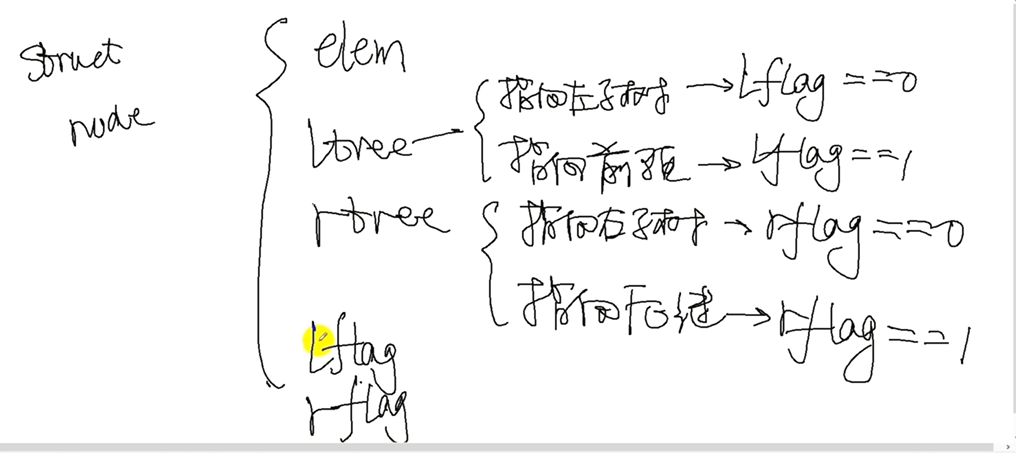 struct
node
elem
ltree
指向左子树 → Lflag == 0
指向前驱 → Lflag == 1
rtree
指向右子树 → rflag == 0
指向后继 → rflag == 1
Lflag
rflag